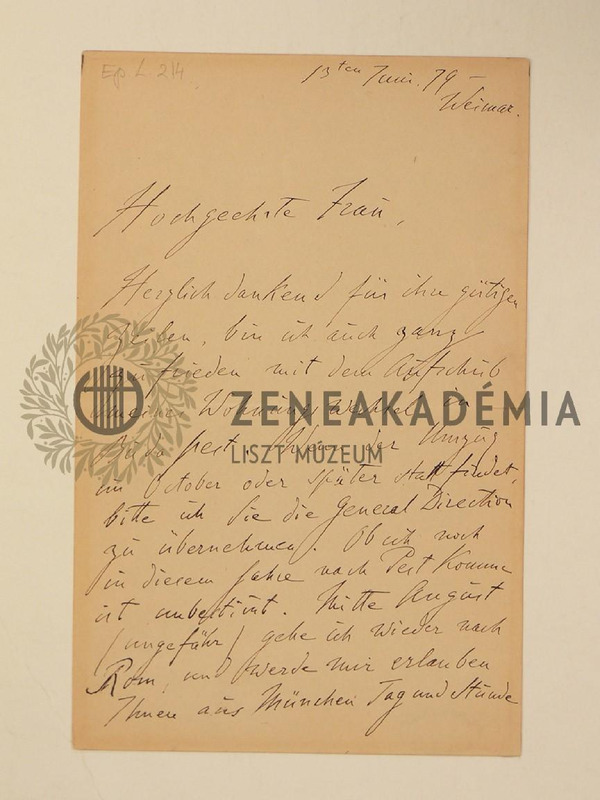 Ep. L. 214.
13ten Juni. 79 –
Weimar.
Hochgeehrte Frau,
Herzlich dankend für ihre gütigen
Zeilen, bin ich auch ganz
zufrieden mit dem Aufschub
meines Wohnungswechsels in
Budapest. Wenn der Umzug
im October oder später stattfindet,
bitte ich Sie die General Direction
zu übernehmen. Ob ich noch
in diesem Jahre nach Pest komme
ist unbestimt. Mitte August
(ungefähr) gehe ich wieder nach
Rom, und werde mir erlauben
Ihnen aus München Tag und Stunde
ZENEAKADÉMIA
LISZT MÚZEUM